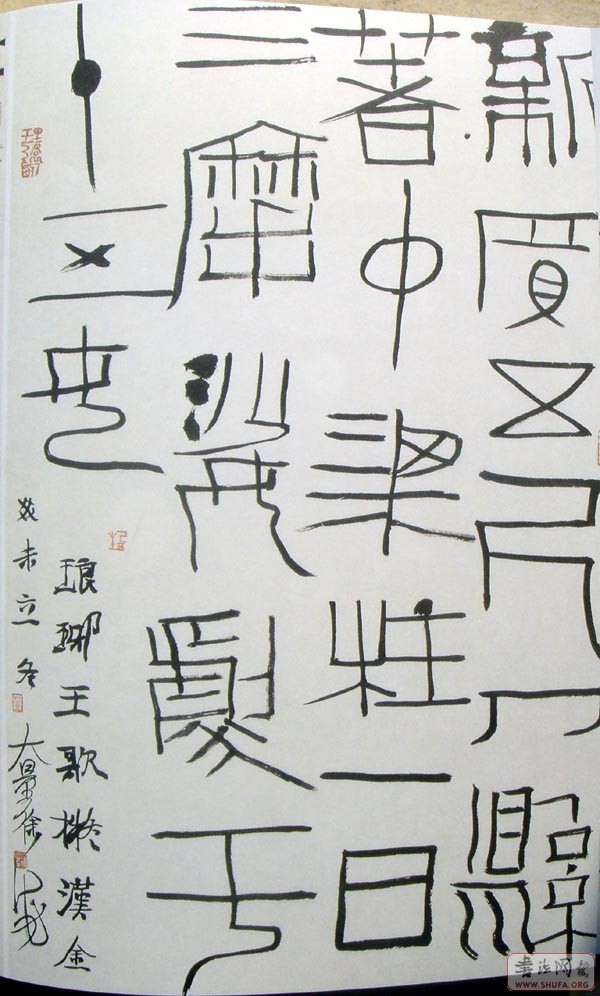 新買五尺刀縣
著中梁柱一日
三摩娑劇于
十五女
琅琊王歌擬漢金
癸未立冬大量徐
書法网
WWW.SHUFA.ORG